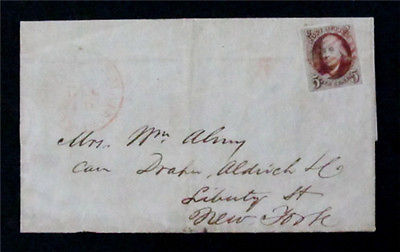 POST OFFICE
5 5
Mrs. Wm Almy
Care Draper, Aldrich & Co
Liberty St
New York